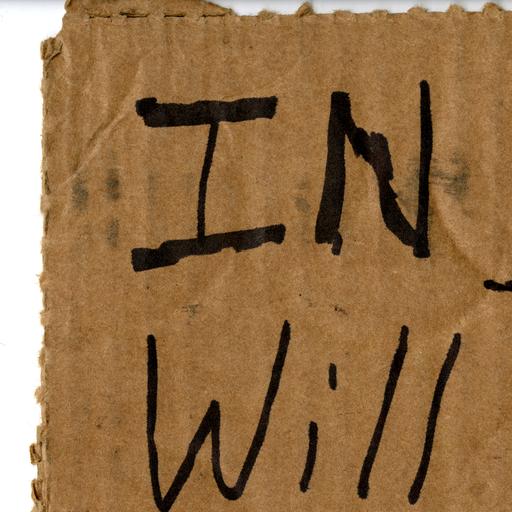 IN
Will